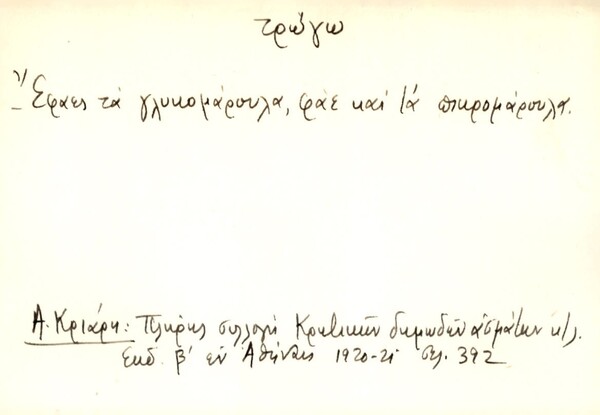 τρώγω
- Ἔφαες τὰ γλυκομάρουλα, φάε καὶ τὰ πικρομάρουλα.
Α. Κριάρη: Πλήρης συλλογὴ Κρητικῶν δημωδῶν ἀσμάτων κ/λ.
Ἐκδ. β' ἐν Ἀθήναις 1920-21 σελ. 392